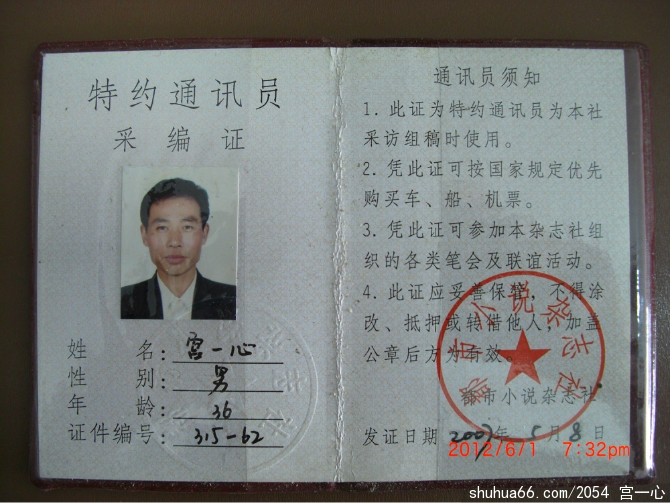 特约通讯员
采编证
姓名：宫一心
性别：男
年龄：36
证件编号：315-62
通讯员须知
1. 此证为特约通讯员为本社
采访组稿时使用。
2. 凭此证可按国家规定优先
购买车、船、机票。
3. 凭此证可参加本杂志社组
织的各类笔会及联谊活动。
4. 此证应妥善保管，不得涂
改、抵押或转借他人，加盖
公章后方为有效。
都市小说杂志社
都市小说杂志社
发证日期 2007年5月8日
2012/6/1 7:32pm
shuhua66.com/2054 宫一心